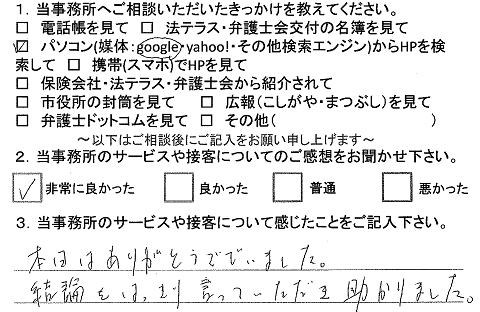 1. 当事務所へご相談いただいたきっかけを教えてください。
□ 電話帳を見て □ 法テラス・弁護士会交付の名簿を見て
☑ パソコン(媒体:google・yahoo!・その他検索エンジン)からHPを検
索して □ 携帯(スマホ)でHPを見て
□ 保険会社・法テラス・弁護士会から紹介されて
□ 市役所の封筒を見て □ 広報(こしがや・まつぶし)を見て
□ 弁護士ドットコムを見て □ その他( )
～以下はご相談後にご記入をお願い申し上げます～
2. 当事務所のサービスや接客についてのご感想をお聞かせ下さい。
☑ 非常に良かった □ 良かった □ 普通 □ 悪かった
3. 当事務所のサービスや接客について感じたことをご記入下さい。
本日はありがとうでざいました。
結論をはっきり言っていただき助かりました。